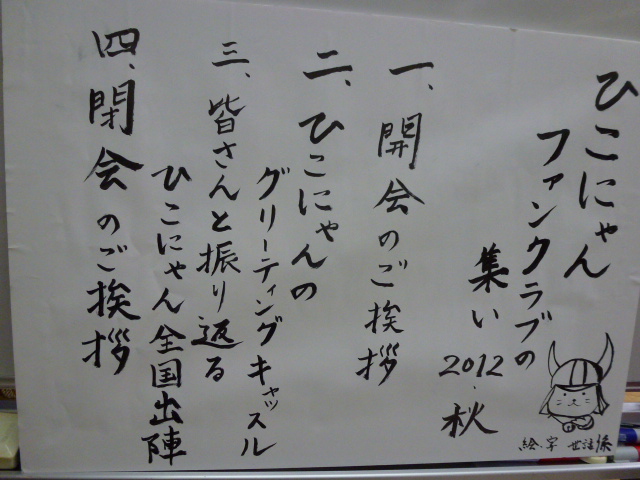 ひこにゃん
ファンクラブの
集い
2012.秋
一、開会のご挨拶
二、ひこにゃんの
グリーティングキャッスル
三、皆さんと振り返る
ひこにゃん全国出陣
四、閉会のご挨拶
絵・字 世話係